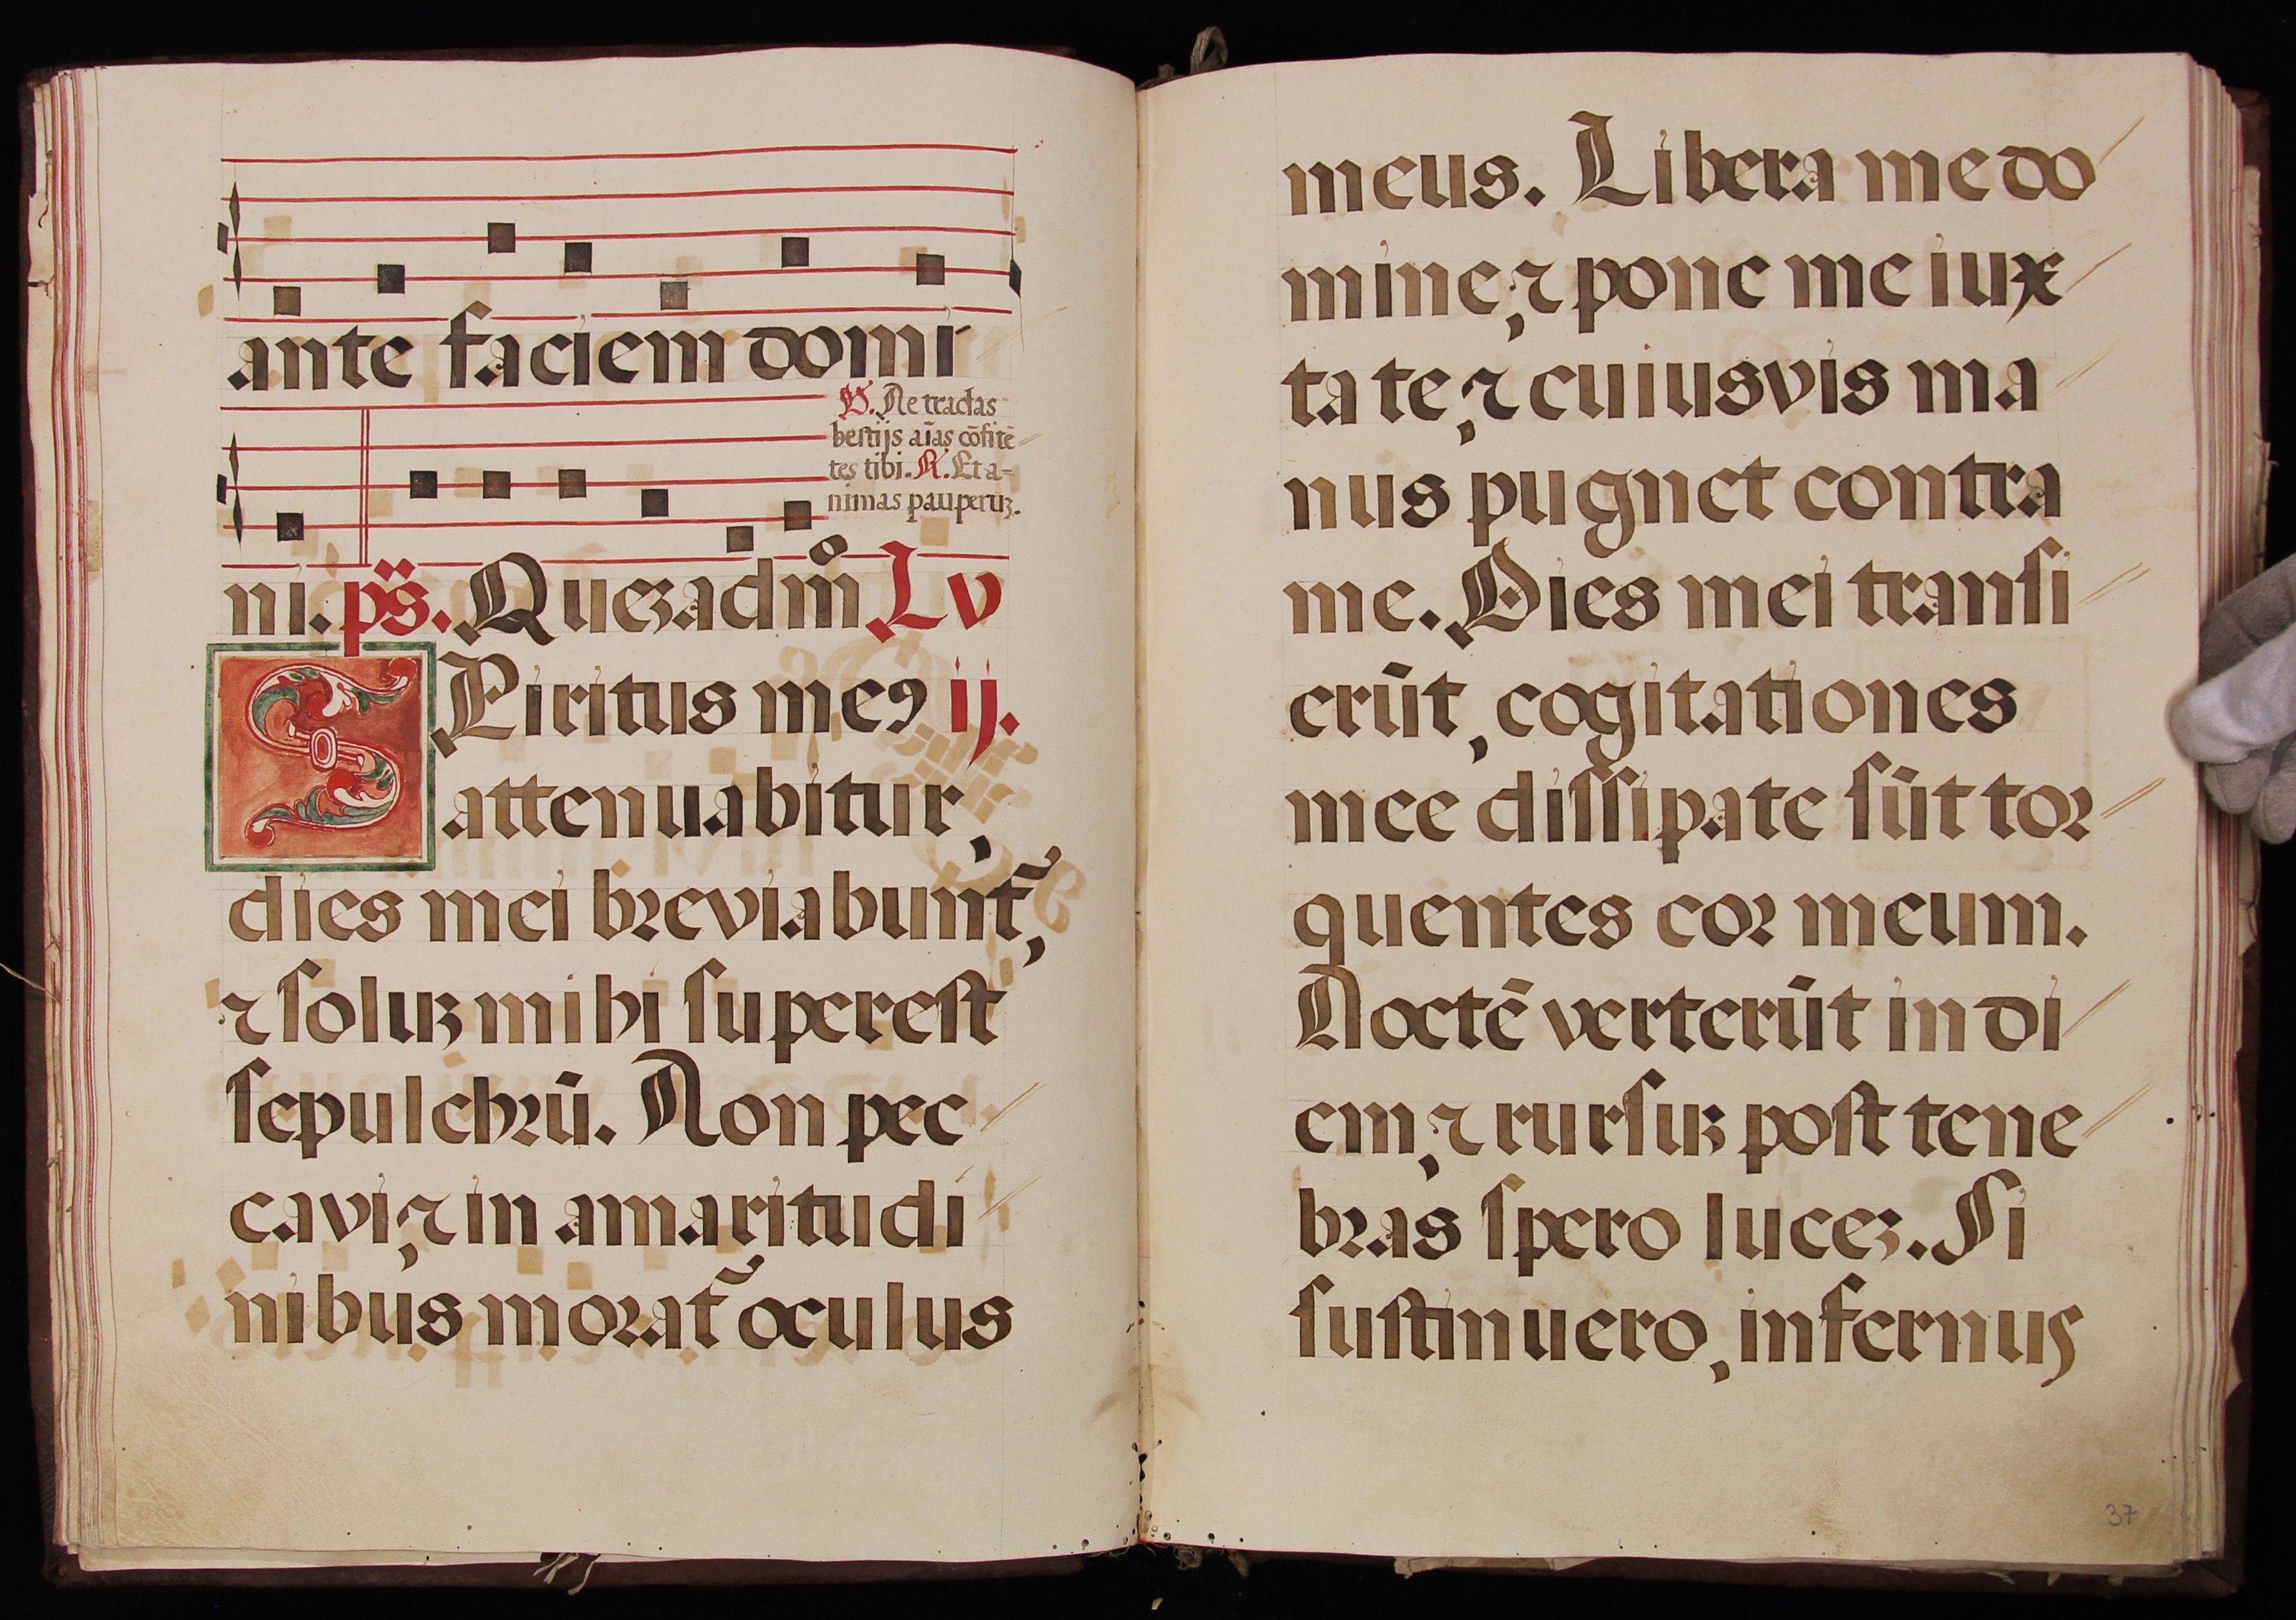 ante faciem domi
℣. Ne tradas
bestijs aīas cōfitē
tes tibi. ℟. Et a-
nimas pauperuꝫ.
ni. ps̈. Queꝫadm̊ Lv
SPiritus meꝯ ij.
attenuabitur,
dies mei breviabunt᷑,
⁊ soluꝫ mihi superest
sepulchrū. Non pec
cavi, ⁊ in amaritudi
nibus morat᷑ oculus
meus. Libera me do
mine, ⁊ pone me iux
ta te, ⁊ cuiusvis ma
nus pugnet contra
me. Dies mei transi
erūt, cogitationes
mee dissipate sūt tor
quentes cor meum.
Noctē verterūt in di
em, ⁊ rursuꝫ post tene
bras spero luceꝫ. Si
sustinuero, infernus
37